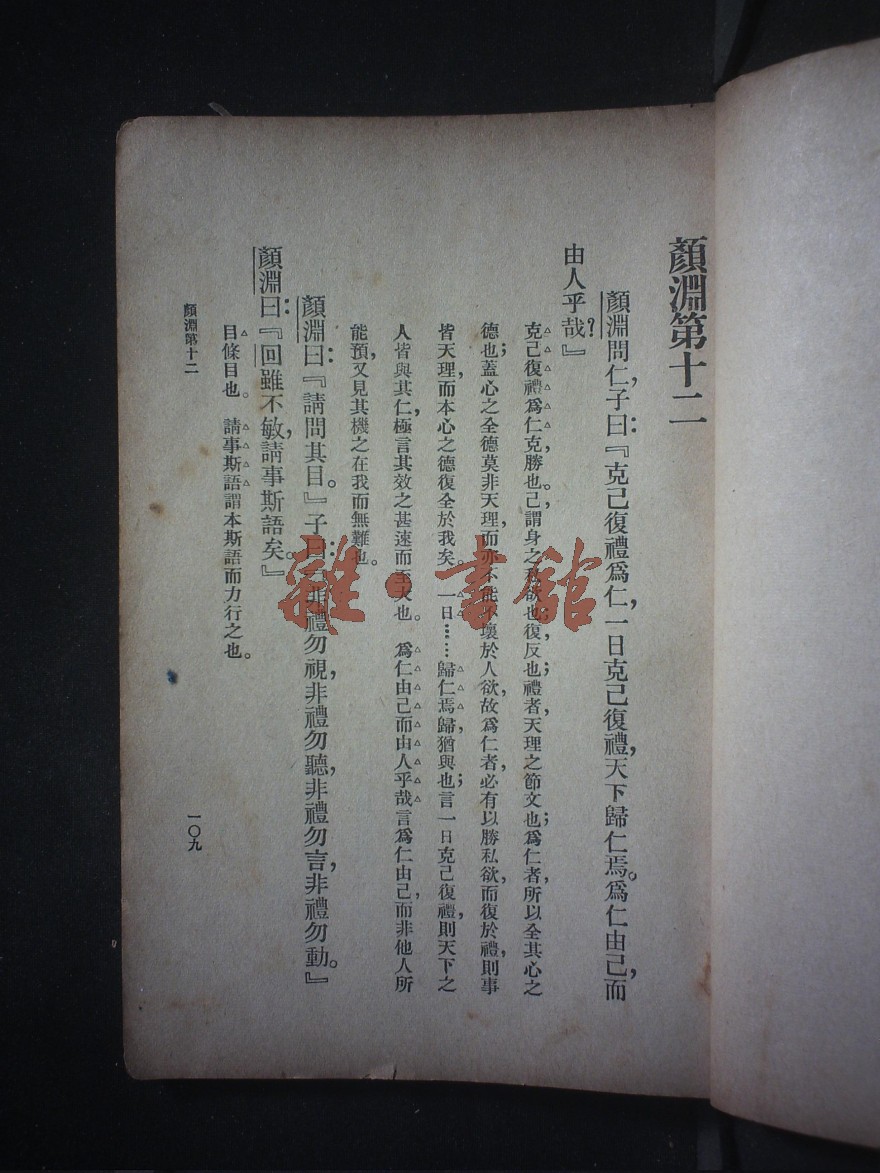 顏淵第十二
顏淵問仁，子曰：『克己復禮爲仁，一日克己復禮，天下歸仁焉。爲仁由己，而
由人乎哉？』
克己復禮爲仁，克，勝也。己，謂身之私欲也；復，反也；禮者，天理之節文也；爲仁者，所以全其心之
德也；蓋心之全德，莫非天理，而亦不能不壞於人欲，故爲仁者必有以勝私欲而復於禮，則事
皆天理，而本心之德，復全於我矣。一日……歸仁焉，歸，猶與也；言一日克己復禮，則天下之
人皆與其仁，極言其效之甚速而至大也。爲仁由己而由人乎哉，言爲仁由己，而非他人所
能預，又見其機之在我而無難也。
顏淵曰：『請問其目。』子曰：『非禮勿視，非禮勿聽，非禮勿言，非禮勿動。』
顏淵曰：『回雖不敏，請事斯語矣。』
目，條目也。請事斯語，謂本斯語而力行之也。
顏淵第十二
一〇九
雜·書館